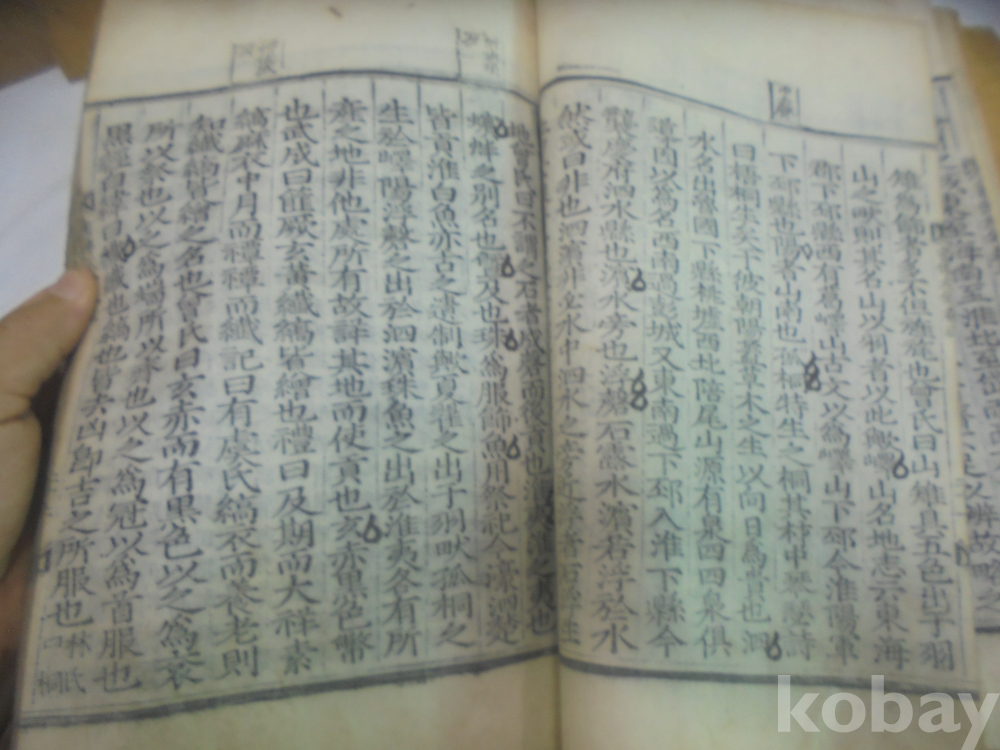 雉爲飾者多不但旌旄也曾氏曰山雉具五色出于羽
山之畎則其名山以羽者以此歟嶧山名地志云東海
郡下邳縣西有葛嶧山古文以爲嶧山下邳今淮陽軍
下邳縣也陽者山南也孤桐特生之桐其材中琴瑟詩
曰梧桐生矣于彼朝陽蓋草木之生以向日爲貴也泗
水名出魯國下縣桃墟西北陪尾山源有泉四四泉俱
導因以爲名西南過彭城又東南過下邳入淮下縣今
襲慶府泗水縣也濱水旁也浮磬石露水濱若浮於水
然或曰非也泗濱非必水中泗水之旁近浮者石浮生土
地曾氏曰不謂之石者成磬而後貢也淮夷淮之夷也
蠙蚌之別名也曁及也珠爲服飾魚用祭祀今濠泗楚
皆貢淮白魚亦古之遺制歟夏翟之出于羽畎孤桐之
生於嶧陽浮磬之出於泗濱珠魚之出於淮夷各有所
産之地非他處所有故詳其地而使貢也玄赤黑色幣
也武成曰篚厥玄黃纖縞皆繒也禮曰及期而大祥素
縞麻衣中月而禫禫而纖記曰有虞氏縞衣而養老則
知纖縞皆繒之名也曾氏曰玄赤而有黑色以之爲袞
所以祭也以之爲端所以齊也以之爲冠以爲首服也
黑經白緯曰纖纖也縞也皆去凶即吉之所服也
林氏
曰桐
kobay